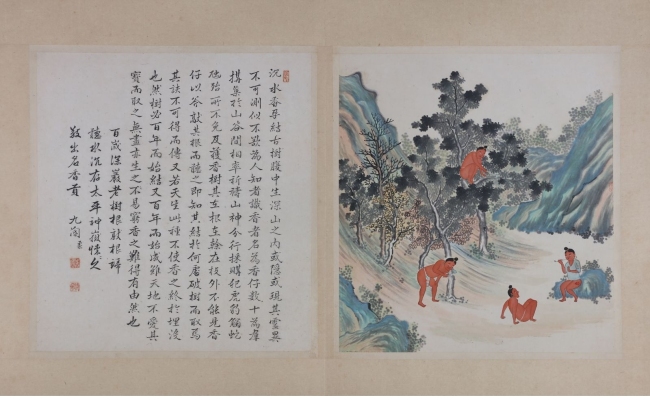 沉水香孕結古樹腹中生深山之內或隱或現其靈異
不可測似不欲為人知者識香者名為香仔數十為群
構巢於山谷間相率祈禱山神分行採購犯虎豹觸蛇
虺殆所不免及獲香樹其在根在榦在枝外不能見香
仔以斧敲其根而聽之即知其結於何處破樹而取焉
其訣不可得而傳又若天生此種不使香之終於埋沒
也然樹必百年而始結又百年而始成雖天地不愛其
寶而取之無盡亦生之不易窮香之難得有由然也
百歲深巖老樹根敲根諦
聽水沉存太平神嶽懷
效出名香貢
九